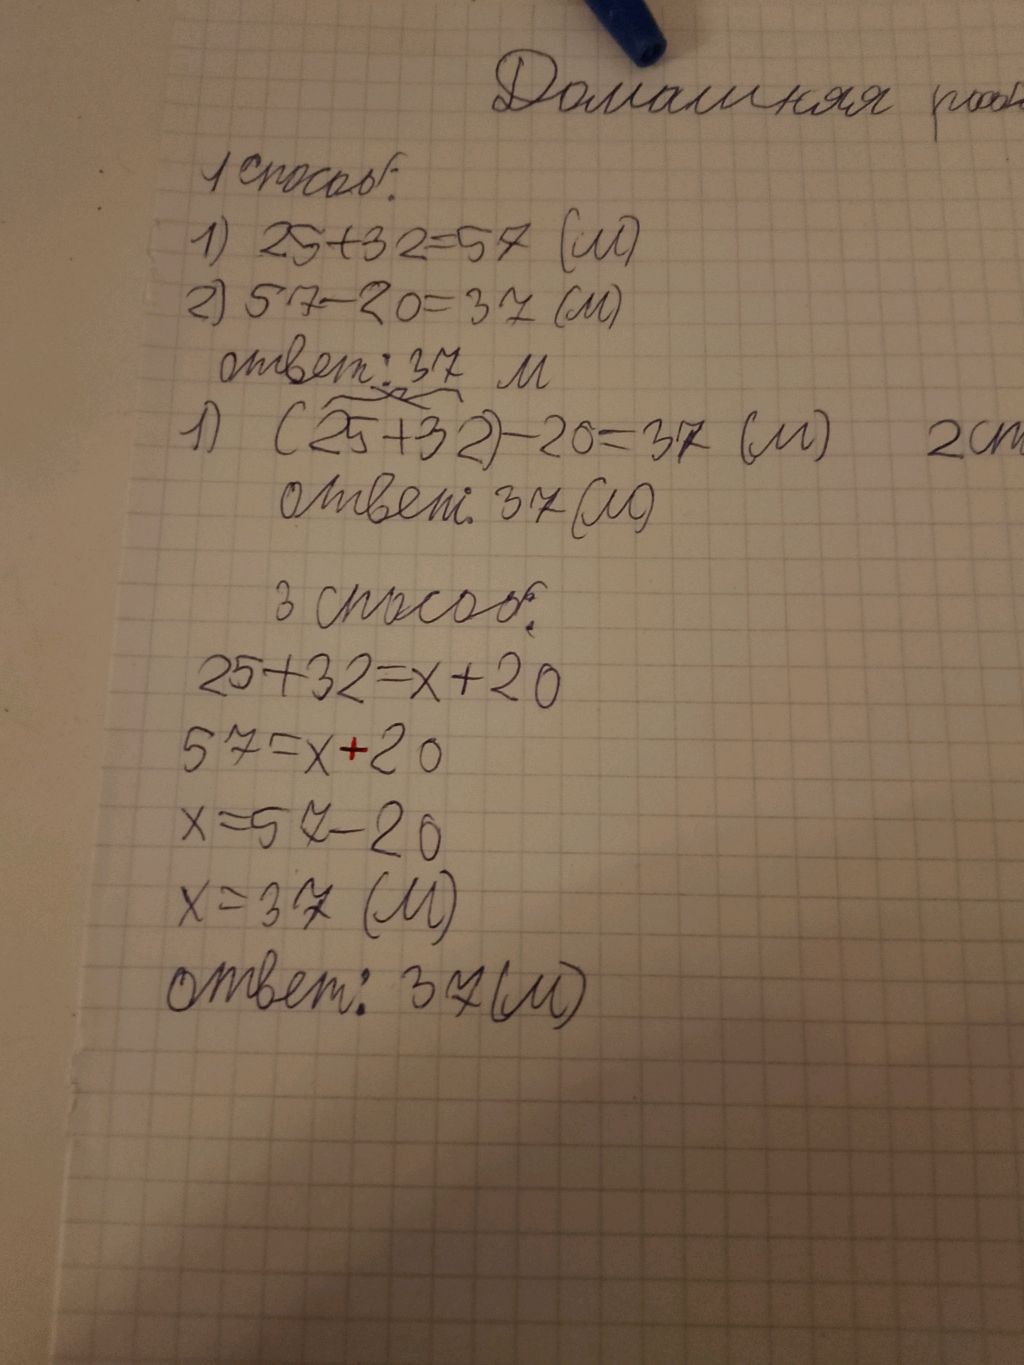 Домашняя
1 способ:
1) 25+32=57 (м)
2) 57-20=37 (м)
ответ: 37 м
1) (25+32)-20=37 (м) 2 сп
ответ: 37 (м)
3 способ:
25+32=x+20
57=x+20
x=57-20
x=37 (м)
ответ: 37 (м)